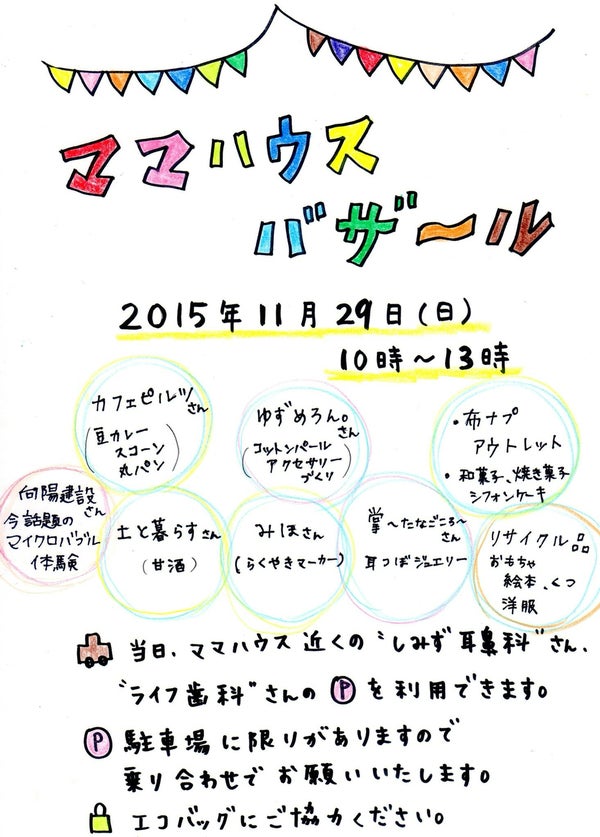 ママハウス
バザール
2015年11月29日(日)
10時〜13時
カフェピルツさん
(豆カレー
スコーン
丸パン)
ゆずめろん。さん
(コットンパール
アクセサリー
づくり)
・布ナプ
アウトレット
・和菓子、焼き菓子
シフォンケーキ
向陽建設さん
今話題の
マイクロバブル
体験
土と暮らすさん
(甘酒)
みほさん
(らくやきマーカー)
掌〜たなごころ〜さん
耳つぼジュエリー
リサイクル品
おもちゃ
絵本、くつ
洋服
当日、ママハウス近くの"しみず耳鼻科"さん、
"ライフ歯科"さんのⓅを利用できます。
Ⓟ駐車場に限りがありますので
乗り合わせでお願いいたします。
エコバッグにご協力ください。